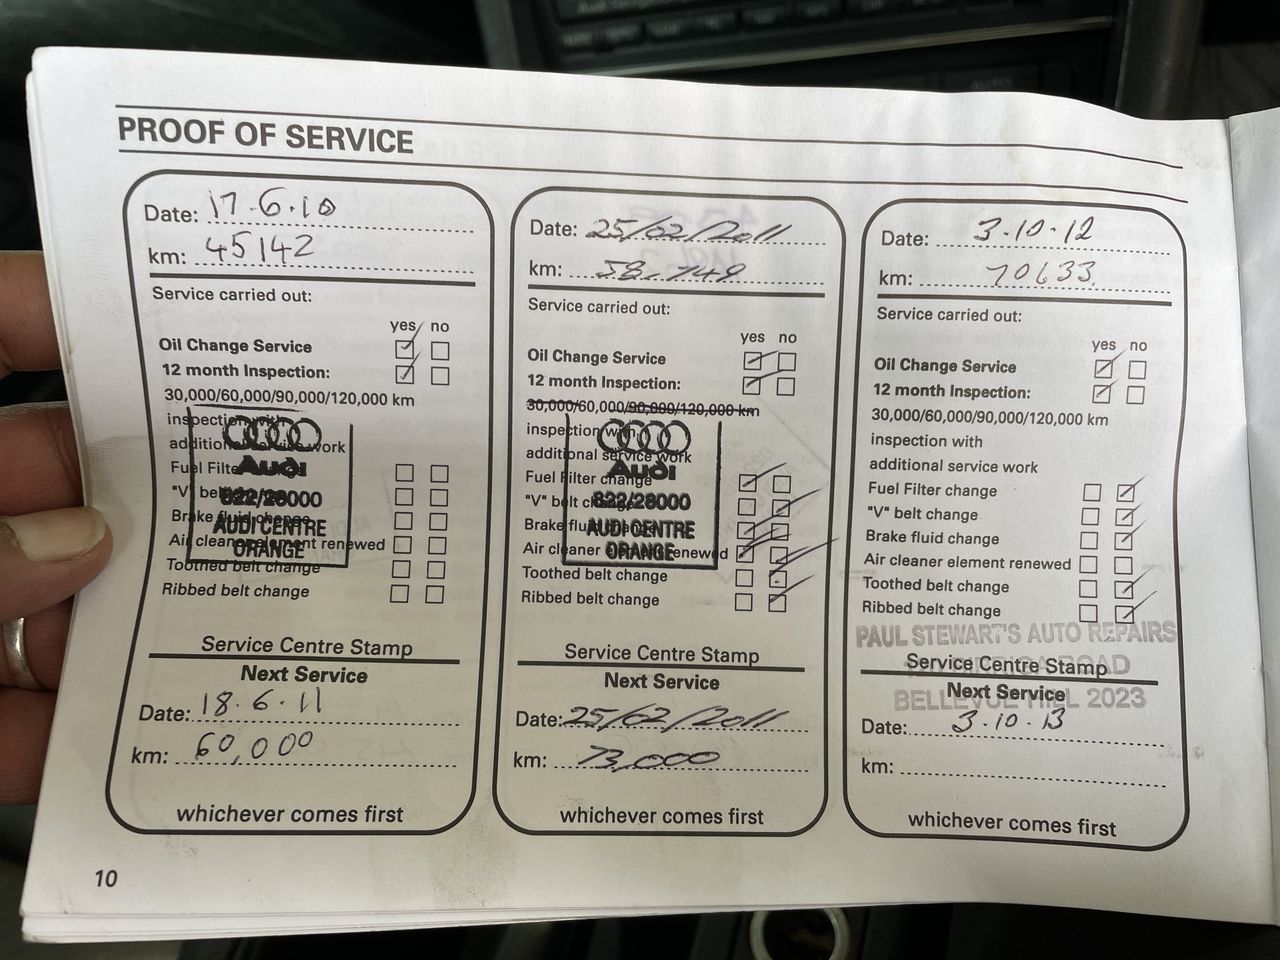 PROOF OF SERVICE
Date: 17.6.10
km: 45142
Service carried out:
yes no
Oil Change Service
12 month Inspection:
30,000/60,000/90,000/120,000 km
inspection with
additional service work
Fuel Filter
"V" belt
Brake fluid change
Air cleaner element renewed
Toothed belt change
Ribbed belt change
Audi
822/28000
AUDI CENTRE
ORANGE
Service Centre Stamp
Next Service
Date: 18.6.11
km: 60,000
whichever comes first
Date: 25/02/2011
km: 58.749
Service carried out:
yes no
Oil Change Service
12 month Inspection:
30,000/60,000/90,000/120,000 km
inspection with
additional service work
Fuel Filter change
"V" belt change
Brake fluid change
Air cleaner element renewed
Toothed belt change
Ribbed belt change
Audi
822/28000
AUDI CENTRE
ORANGE
Service Centre Stamp
Next Service
Date: 25/02/2011
km: 73,000
whichever comes first
Date: 3.10.12
km: 70633.
Service carried out:
yes no
Oil Change Service
12 month Inspection:
30,000/60,000/90,000/120,000 km
inspection with
additional service work
Fuel Filter change
"V" belt change
Brake fluid change
Air cleaner element renewed
Toothed belt change
Ribbed belt change
PAUL STEWART'S AUTO REPAIRS
ROAD
BELLEVUE HILL 2023
Service Centre Stamp
Next Service
Date: 3.10.13
km:
whichever comes first
10